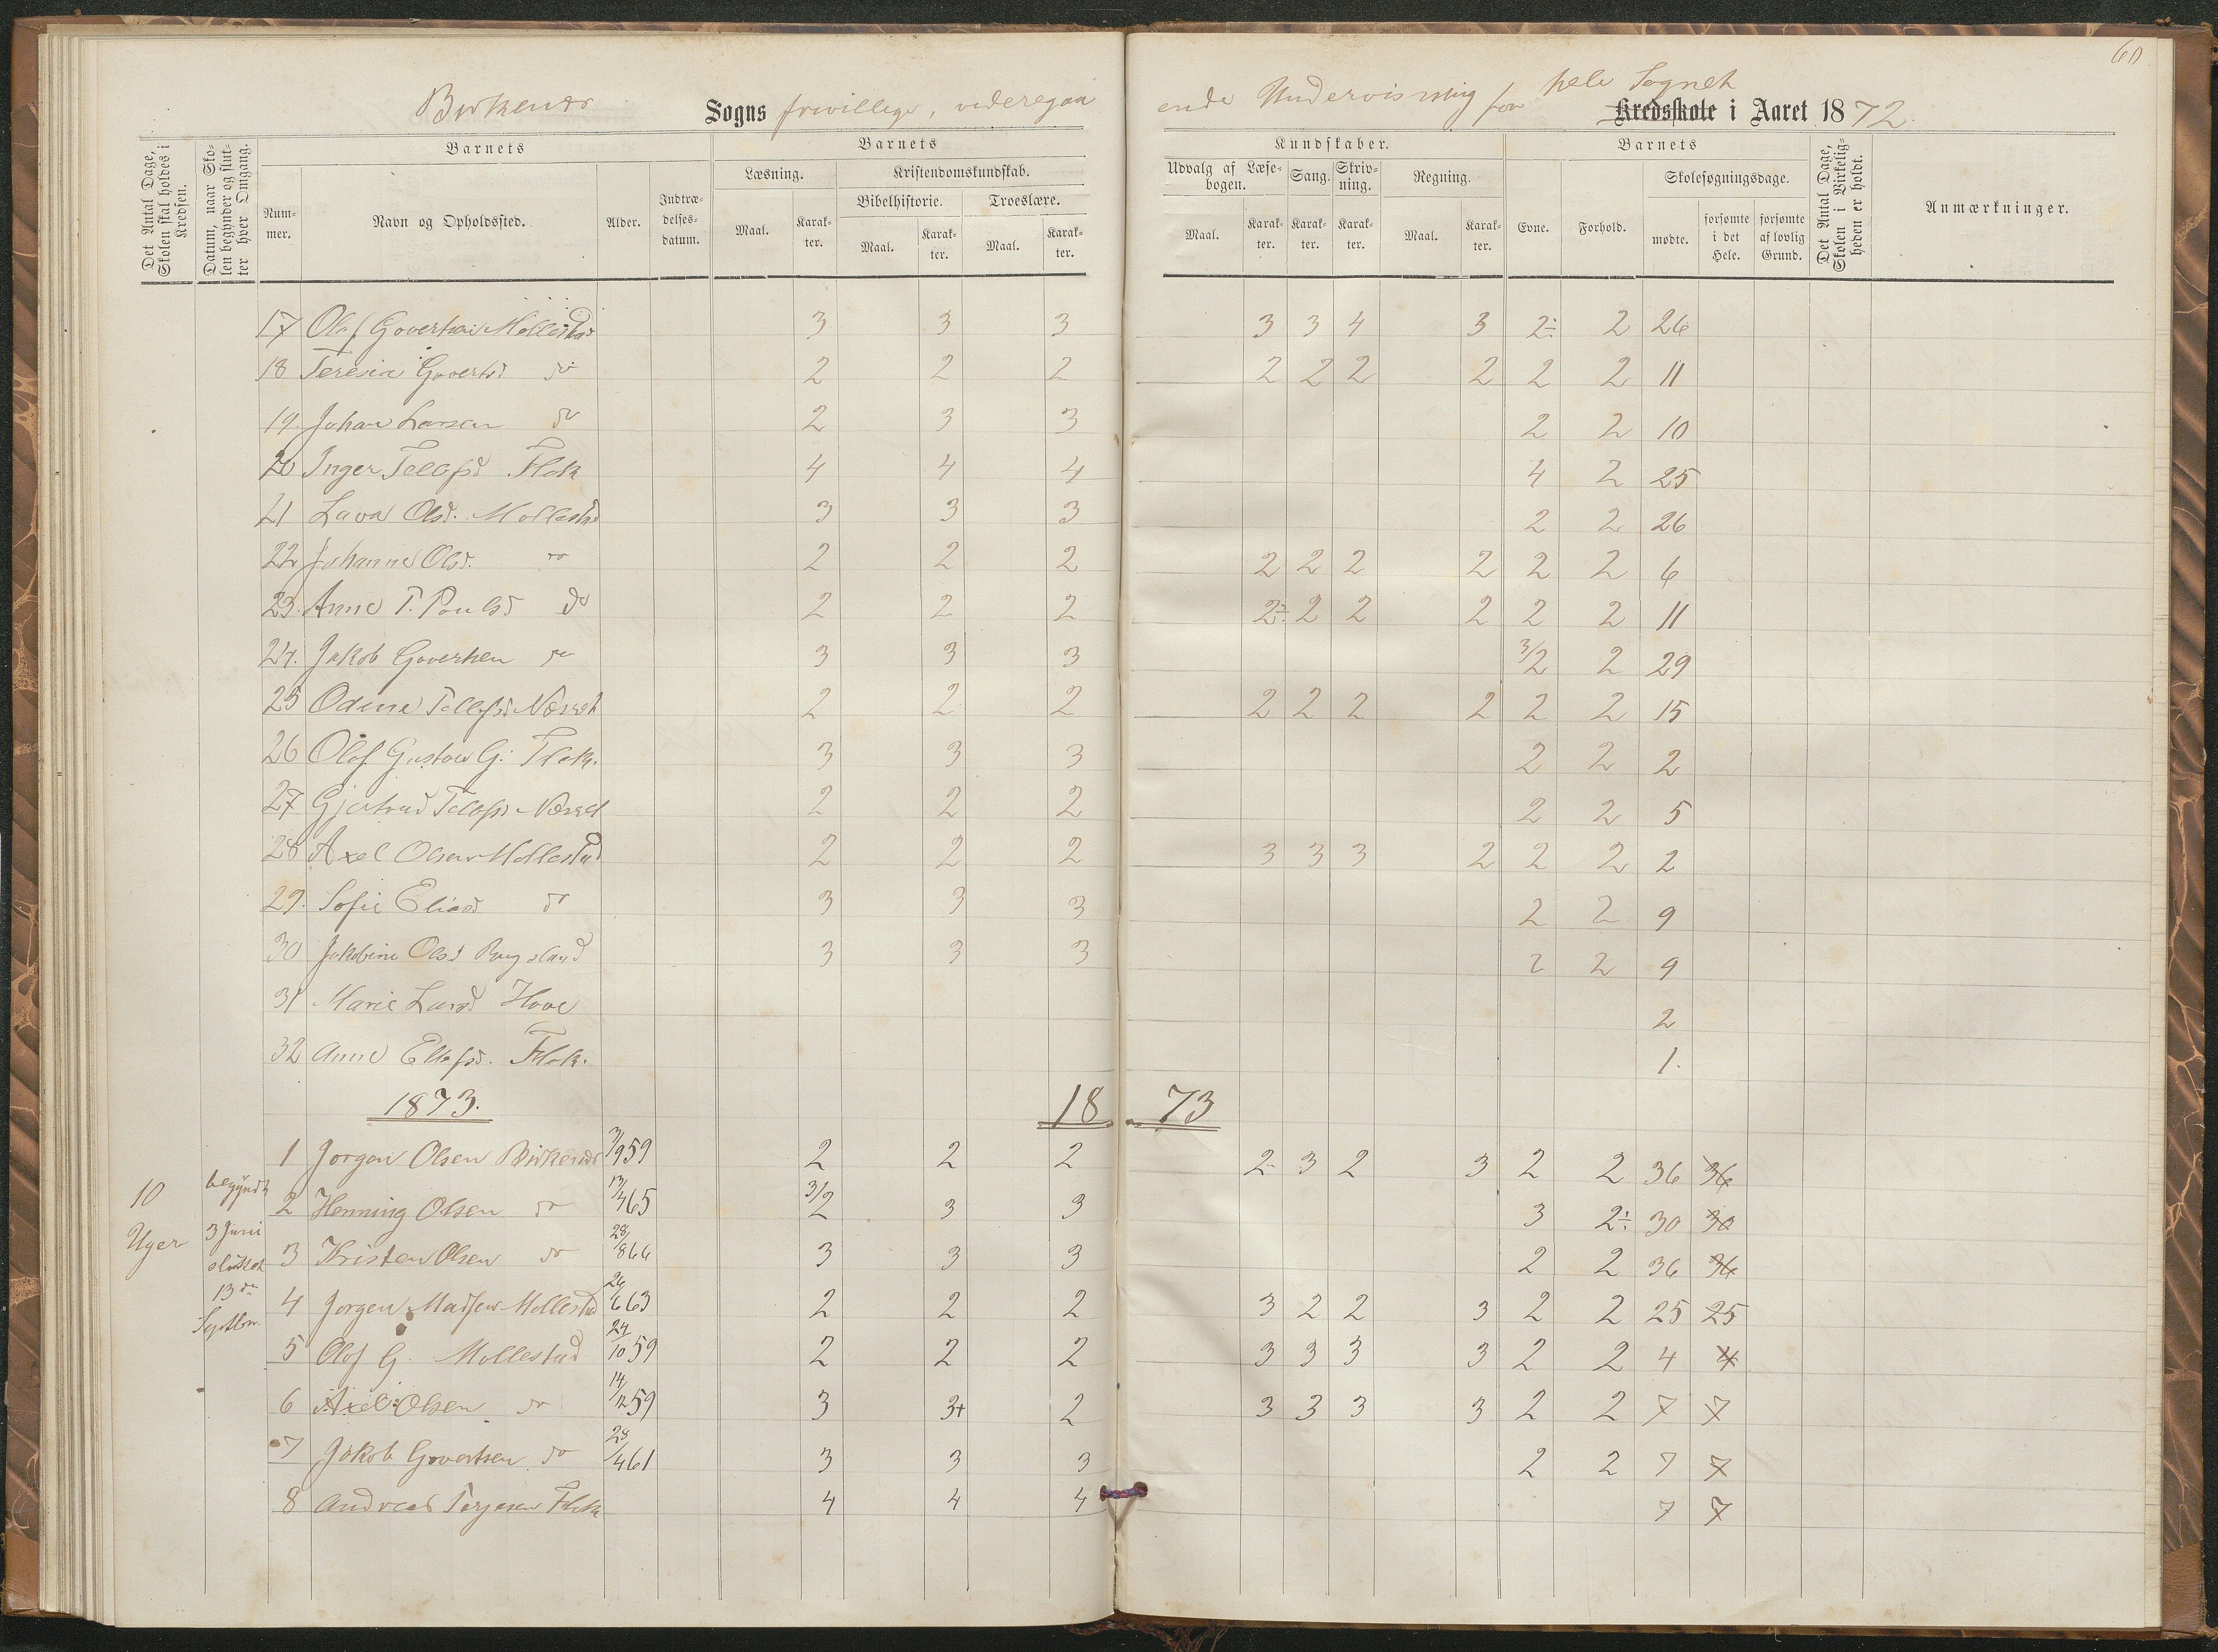 60
Birkenes Sogns frivillige, videregaaende Undervisning for hele Sognet Kredsskole i Aaret 1872
Det Antal Dage, Skolen skal holdes i Kredsen.
Datum, naar Skolen begynder og slutter hver Omgang.
Barnets
Nummer.
Navn og Opholdssted.
Alder.
Indtrædelsesdatum.
Barnets
Læsning.
Maal.
Karakter.
Kristendomskundskab.
Bibelhistorie.
Maal.
Karakter.
Troeslære.
Maal.
Karakter.
Kundskaber.
Udvalg af Læsebogen.
Maal.
Karakter.
Sang.
Karakter.
Skrivning.
Karakter.
Regning.
Maal.
Karakter.
Barnets
Evne.
Forhold.
Skolesøgningsdage.
mødte.
forsømte i det Hele.
forsømte af lovlig Grund.
Det Antal Dage, Skolen i Virkeligheden er holdt.
Anmærkninger.
17 Olaf Govertsen Mollestad 3 3 3 3 3 4 3 2÷ 2 26
18 Teresia Govertsd do 2 2 2 2 2 2 2 2 2 11
19. Johan Larsen do 2 3 3 2 2 10
20 Inger Tellefsd Flak 4 4 4 4 2 25
21 Lava Olsd. Mollestad 3 3 3 2 2 26
22 Johanne Olsd. do 2 2 2 2 2 2 2 2 2 6
23. Anne T. Poulsd do 2 2 2 2÷ 2 2 2 2 2 11
24. Jakob Govertsen do 3 3 3 3/2 2 29
25 Odine Tellefsd Næset 2 2 2 2 2 2 2 2 2 15
26 Olaf Gustav G. Flak. 3 3 3 2 2 2
27 Gjertrud Tellefsd Næset 2 2 2 2 2 5
28 Axel Olsen Mollestad 2 2 2 3 3 3 2 2 2 2
29. Sofie Eliasd do 3 3 3 2 2 9
30 Jakobine Olsd Rugsland 3 3 3 2 2 9
31 Marie Larsd Hove 2
32 Anne Ellefsd. Flak. 1.
1873. 18 73
10 Uger
begyndt 3 Juni sluttet 13de Septbr.
1 Jørgen Olsen Birkenes 3/9 59 2 2 2 2 3 2 3 2 2 36 36
2 Henning Olsen do 13/4 65 3/2 3 3 3 2÷ 30 30
3 Kristen Olsen do 28/8 66 3 3 3 2 2 36 36
4 Jørgen Madsen Mollestad 26/6 63 2 2 2 3 2 2 3 2 2 25 25
5 Olaf G. Mollestad 24/10 59 2 2 2 3 3 3 3 2 2 4 4
6 Axel Olsen do 14/12 59 3 3+ 2 3 3 3 3 2 2 7 7
7 Jakob Govertsen do 28/4 61 3 3 3 2 2 7 7
8 Andreas Terjesen Flak 4 4 4 7 7